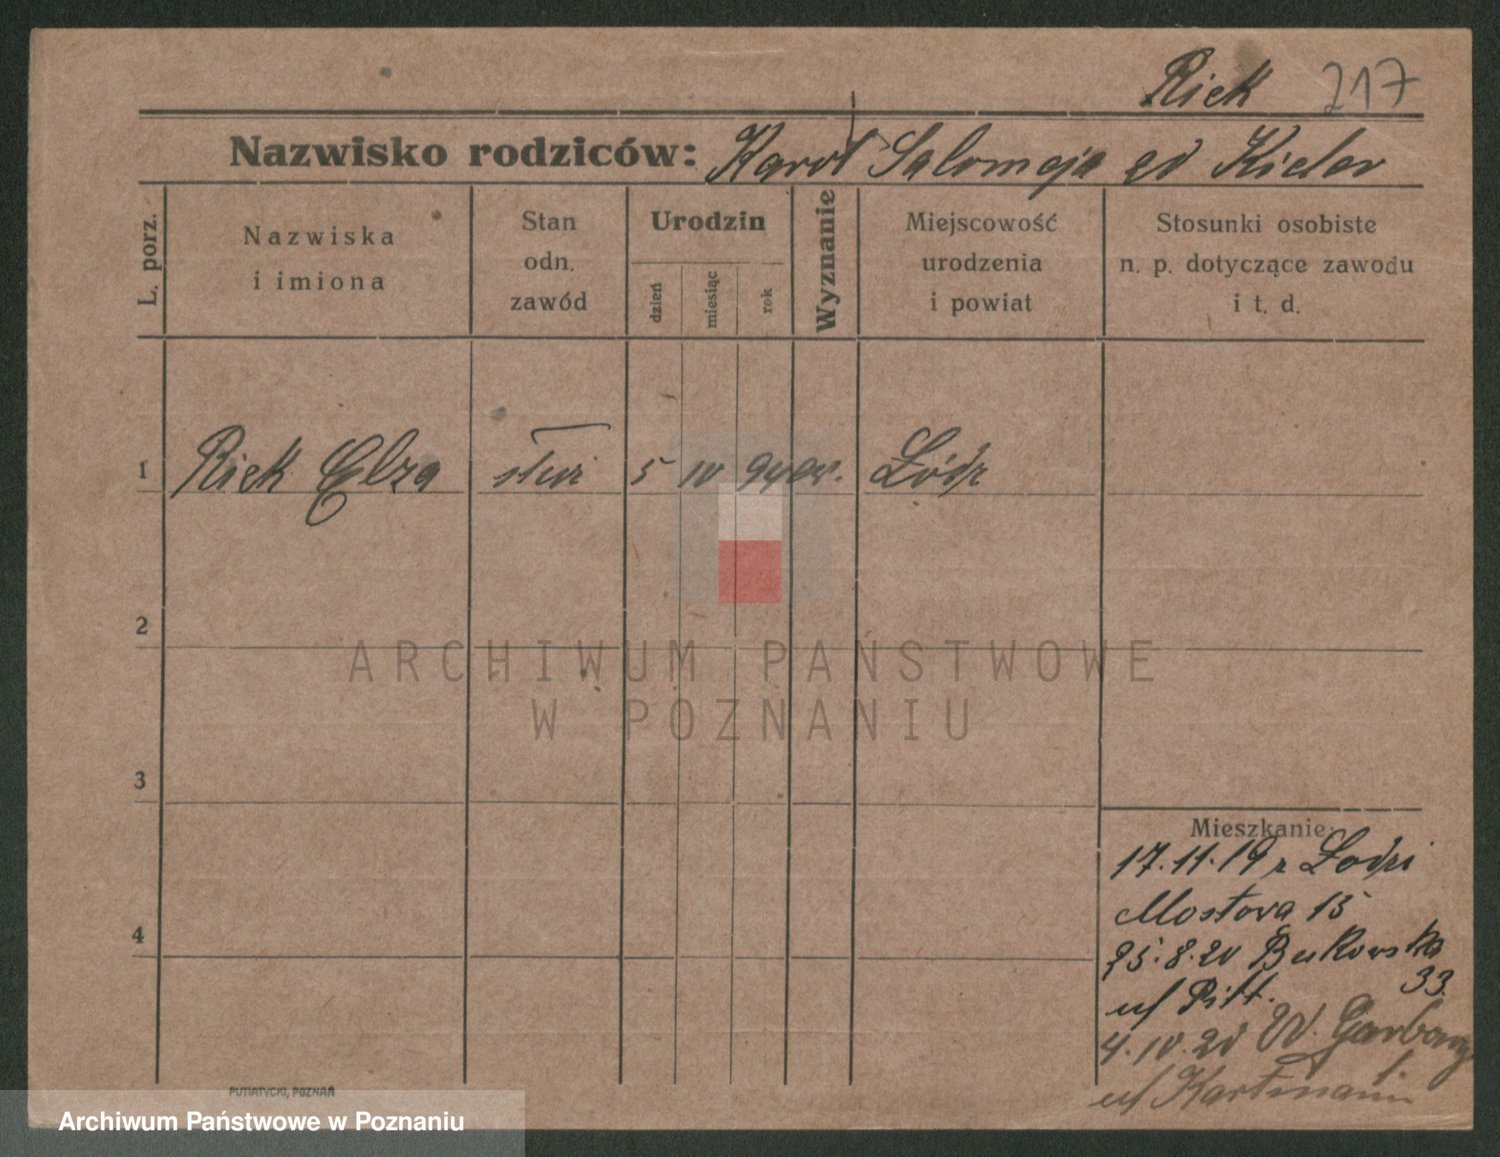 Riek 217
Nazwisko rodziców: Karol Salomeja
L. porz.
Nazwiska
i imiona
Stan
odn.
zawód
Urodzin
dzień
miesiąc
rok
Wyznanie
Miejscowość
urodzenia
i powiat
Stosunki osobiste
n. p. dotyczące zawodu
i t. d.
1 Riek Elza służ 5 10 94 ew. Łódź
2
3
4
Mieszkanie
17.11.19 z Łodzi
Mostowa 15
25.8.20 Bukowska
33.
u/ Pitt.
4.10.20 W. Garbary
u/ Hartmann
PUTIATYCKI, POZNAŃ
ARCHIWUM PAŃSTWOWE
W POZNANIU
Archiwum Państwowe w Poznaniu